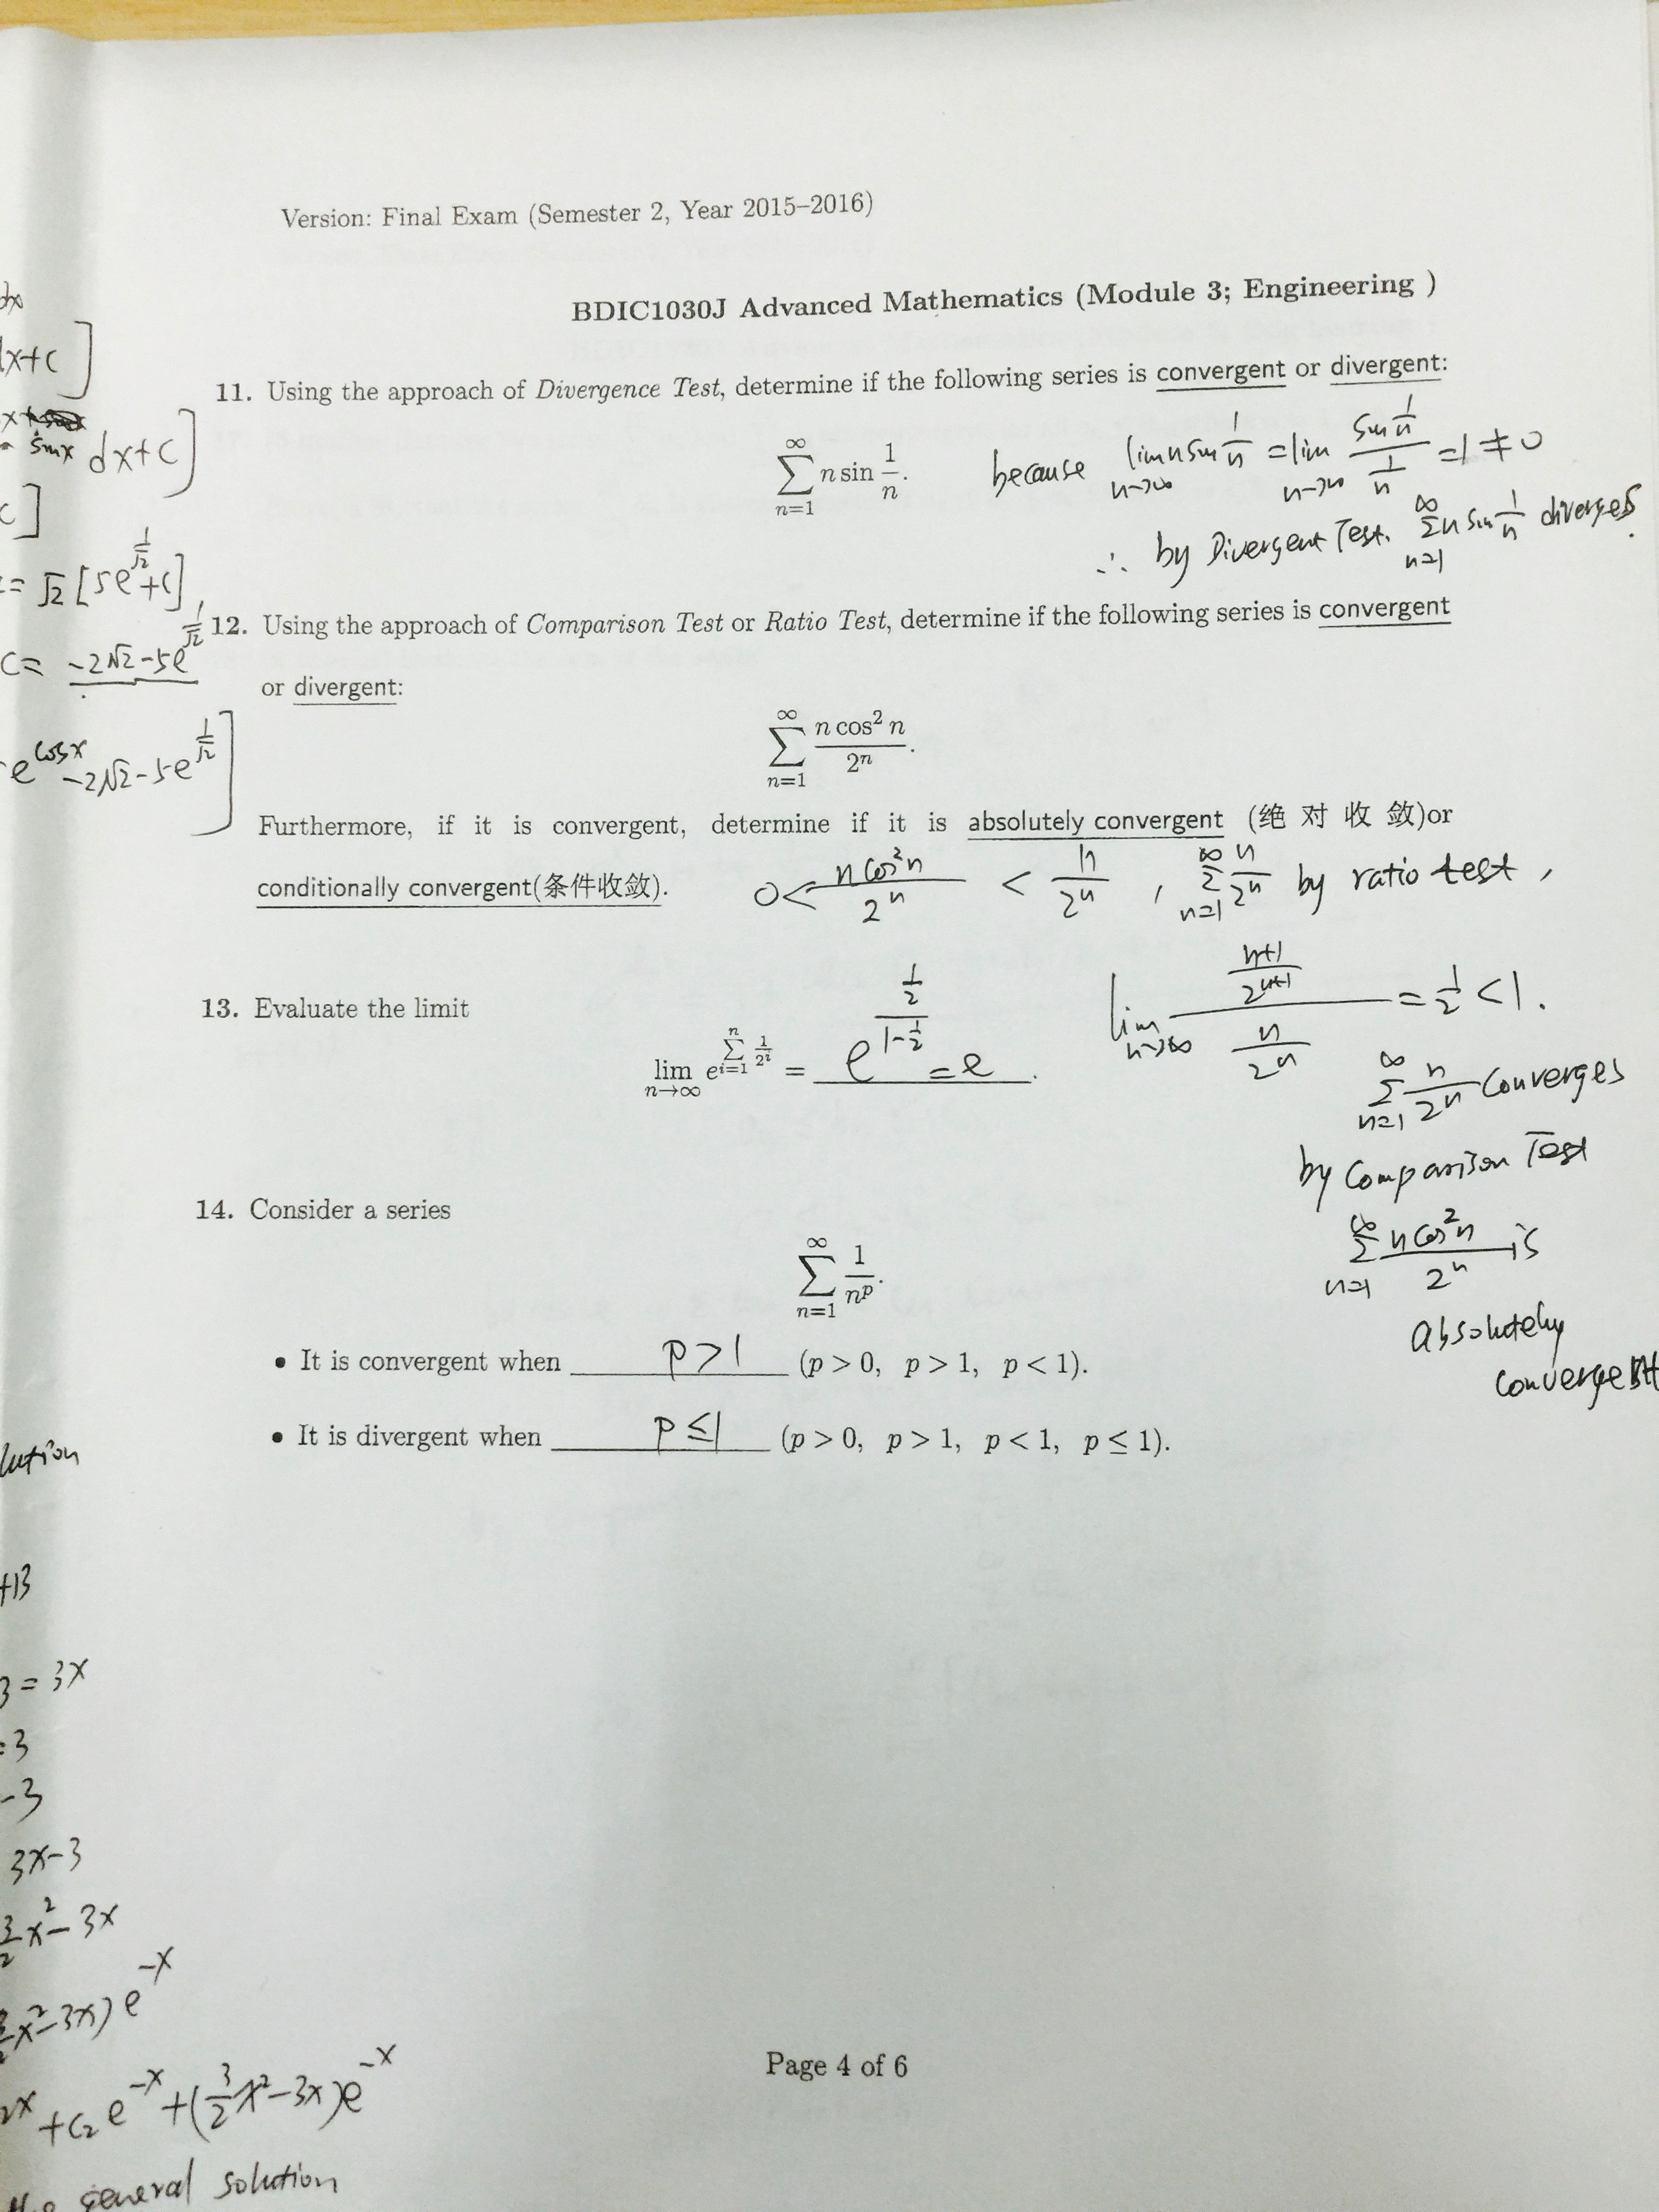 Version: Final Exam (Semester 2, Year 2015–2016)
BDIC1030J Advanced Mathematics (Module 3; Engineering )
11. Using the approach of Divergence Test, determine if the following series is convergent or divergent:
∑_{n=1}^{∞} n sin 1/n. because lim_{n→∞} n sin 1/n = lim_{n→∞} (sin 1/n)/(1/n) = 1 ≠ 0
∴ by Divergent Test. ∑_{n=1}^{∞} n sin 1/n diverges.
12. Using the approach of Comparison Test or Ratio Test, determine if the following series is convergent
or divergent:
∑_{n=1}^{∞} (n cos² n)/2ⁿ.
Furthermore, if it is convergent, determine if it is absolutely convergent (绝 对 收 敛)or
conditionally convergent(条件收敛). 0 < (n cos² n)/2ⁿ < n/2ⁿ , ∑_{n=1}^{∞} n/2ⁿ by ratio test ,
lim_{n→∞} ((n+1)/2^{n+1})/(n/2ⁿ) = 1/2 < 1 .
∑_{n=1}^{∞} n/2ⁿ Converges
by Comparison Test
∑_{n=1}^{∞} (n cos² n)/2ⁿ is
absolutely
convergent
13. Evaluate the limit
lim_{n→∞} e^{∑_{i=1}^{n} 1/2^i} = e^{(1/2)/(1-1/2)} = e .
14. Consider a series
∑_{n=1}^{∞} 1/n^p.
• It is convergent when p>1 (p > 0, p > 1, p < 1).
• It is divergent when p≤1 (p > 0, p > 1, p < 1, p ≤ 1).
Page 4 of 6
dx
dx+c]
sinx dx+c]
c]
= √2 [5e^{1/√2}+c]
c = -2√2-5e^{1/√2}
e^{cosx} -2√2-5e^{1/√2}]
lution
+13
3 = 3x
=3
-3
3x-3
3/2 x² - 3x
x²-3x) e^{-x}
+c₂ e^{-x} + (3/2 x²-3x)e^{-x}
the general solution